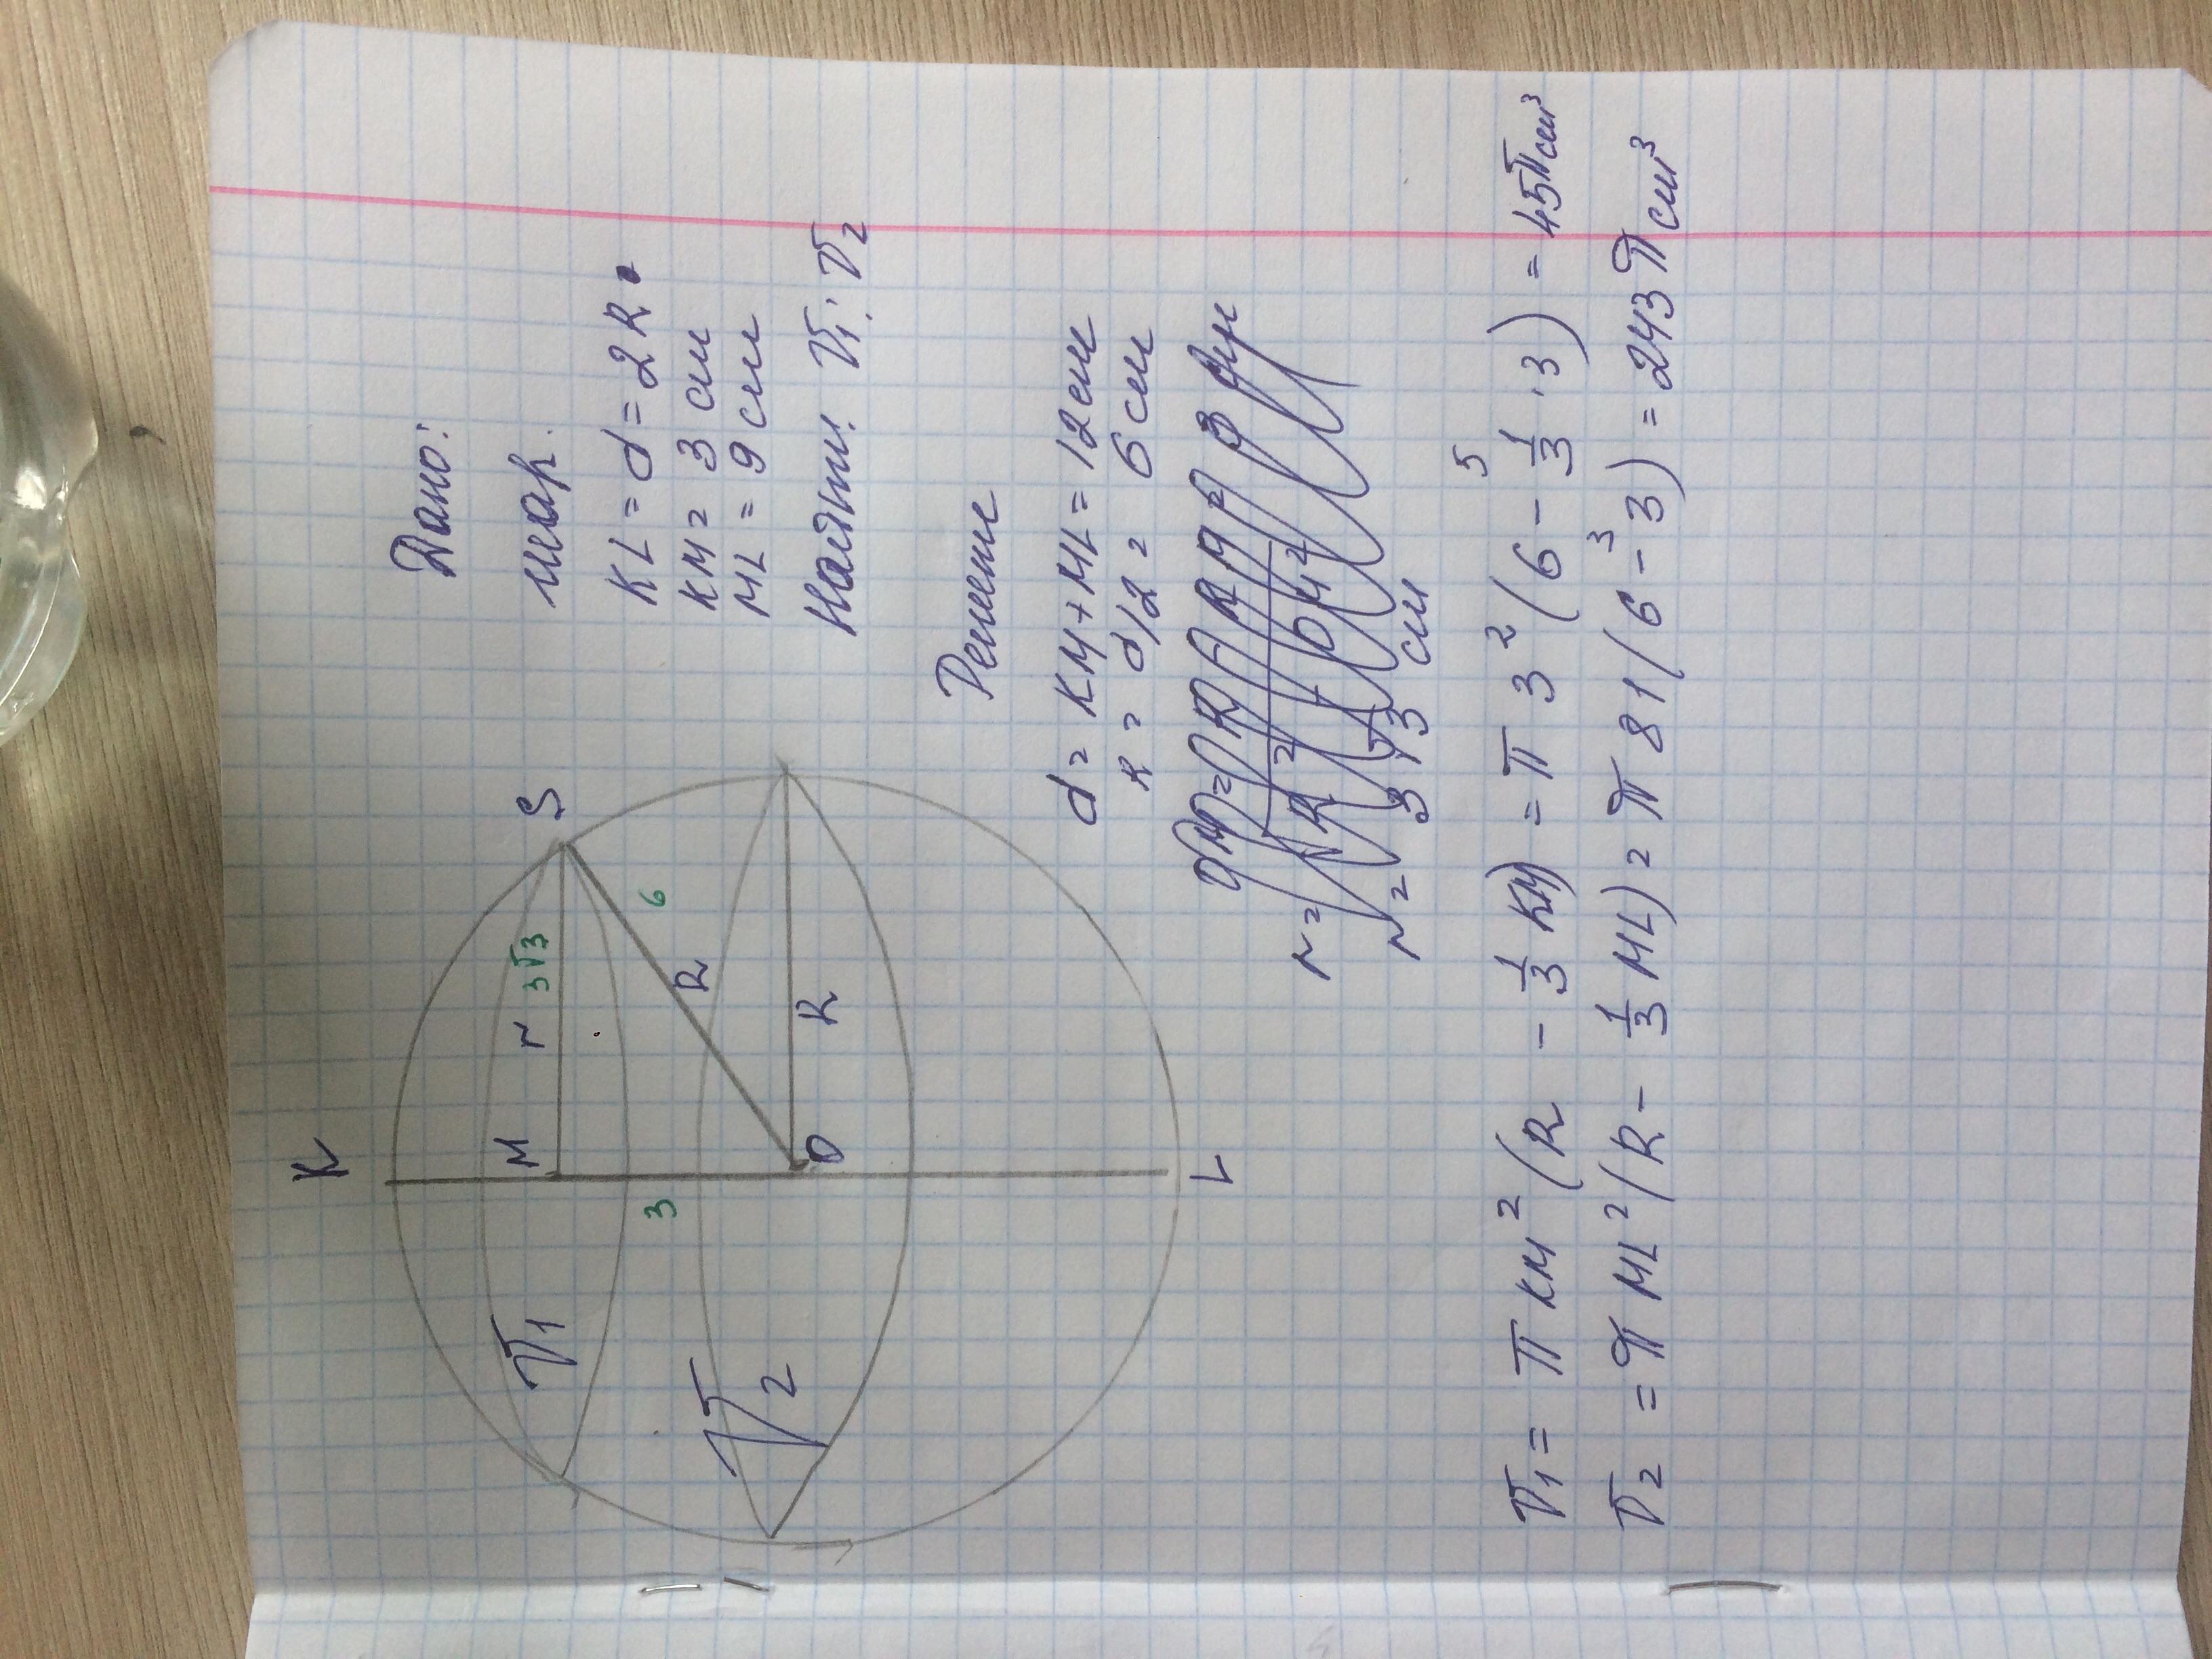 K
M r 3√3 S
V1
3
R 6
V2
O R
L
Дано:
шар.
KL = d = 2R
KM = 3 см
ML = 9 см
Найти: V1; V2
Решение
d = KM + ML = 12 см
R = d/2 = 6 см
r = 3√3 см
V1 = π KM² (R - 1/3 KM) = π 3² (6 - 1/3 · 3) = 45π см³
5
V2 = π ML² (R - 1/3 ML) = π 81 (6 - 3) = 243π см³
3